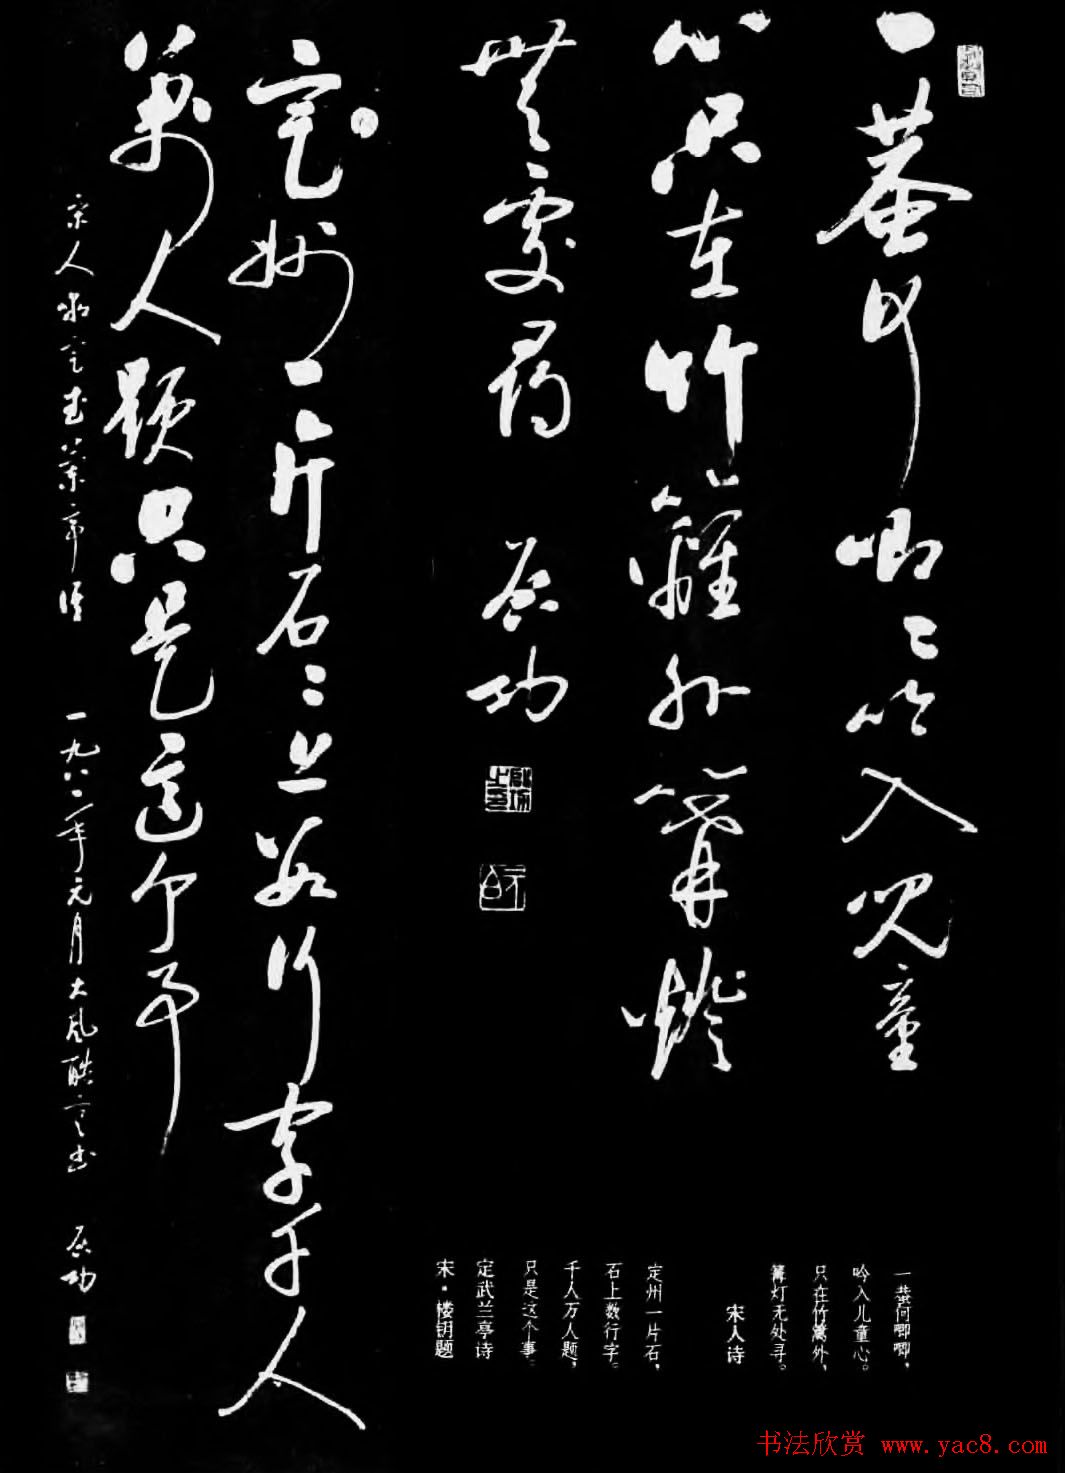 一蛬何唧〻吟入兒童
心只在竹籬外篝燈
無處尋 啟功
啟功之印
元白
定州一片石〻上數行字千人
萬人題只是這个事
宋人 定武蘭亭詩 一九八二年元月大風酷寒書 啟功
一蛬何唧唧，
吟入儿童心。
只在竹篱外，
篝灯无处寻。
宋人诗
定州一片石，
石上数行字。
千人万人题，
只是这个事。
定武兰亭诗
宋·楼钥题
书法欣赏 www.yac8.com